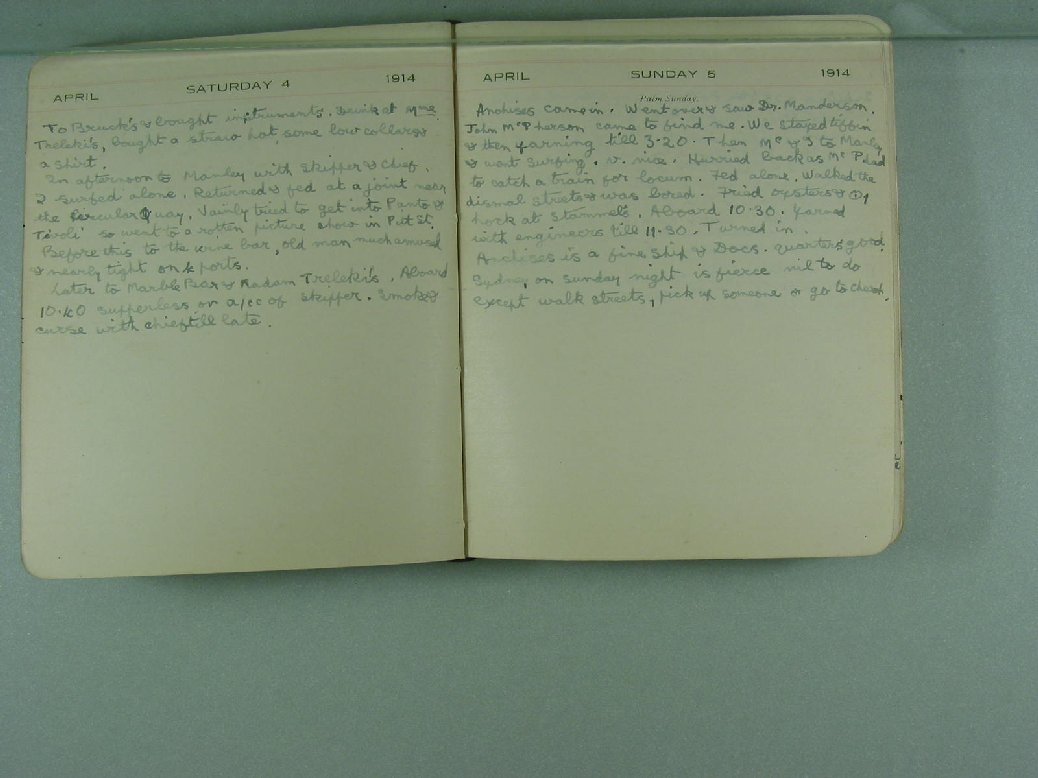 APRIL SATURDAY 4 1914
To Bruck's & bought instruments. Drink at Mme
Treleki's, bought a straw hat some low collars &
a shirt.
In afternoon to Manley with Skipper & Chief.
2 surfed alone. Returned & fed at a joint near
the Circular Quay. Vainly tried to get into Panto &
Tivoli so went to a rotten picture show in Pitt St.
Before this to the wine bar, old man much amused
& nearly tight on 4 ports.
Later to Marble Bar & Madam Treleki's. Aboard
10.40 supperless on a/cc of skipper. Smoke &
curse with chief till late.
APRIL SUNDAY 5 1914
Palm Sunday.
Anchises came in. Went over & saw Dr. Manderson.
John McPherson came to find me. We stayed tiffin
& then yarning till 3.20. Then Mc & I to Manly
& went surfing. v. nice. Hurried back as McP had
to catch a train for locum. Fed alone. Walked the
dismal streets & was bored. Fried oysters &
hock at Stammels. Aboard 10.30. Yarned
with engineers till 11.30. Turned in.
Anchises is a fine ship & Docs. quarters good.
Sydney on Sunday night is fierce nil to do
except walk streets, pick up someone or go to church.